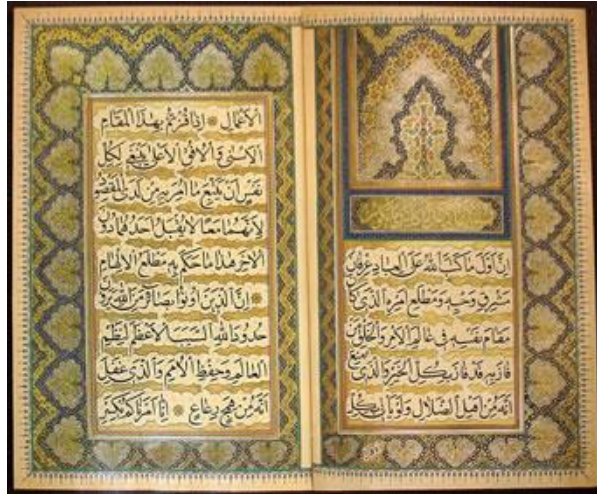 اِنَّ اَوَّلَ مَا كَتَبَ اللهُ عَلَى العِبَادِ عِرْفَانُ
مَشْرِقِ وَحْيِهِ وَمَطْلَعِ اَمْرِهِ الَّذِي كَانَ
مَقَامَ نَفْسِهِ فِي عَالَمِ الاَمْرِ وَالخَلْقِ مَنْ
فَازَ بِهِ قَدْ فَازَ بِكُلِّ الخَيْرِ وَالَّذِي مُنِعَ
اِنَّهُ مِنْ اَهْلِ الضَّلالِ وَلَوْ يَاْتِي بِكُلِّ
الاَعْمَالِ * اِذَا فُزْتُمْ بِهَذَا المَقَامِ
الاَسْنَى وَالاُفُقِ الاَعْلَى يَنْبَغِي لِكُلِّ
نَفْسٍ اَنْ يَتَّبِعَ مَا اُمِرَ بِهِ مِنْ لَدَى المَقْصُودِ
لاَنَّهُمَا مَعًا لا يُقْبَلُ اَحَدُهُمَا دُونَ
الآخَرِ هَذَا مَا حَكَمَ بِهِ مَطْلَعُ الاِلْهَامِ
* اِنَّ الَّذِينَ اُوتُوا بَصَائِرَ مِنَ اللهِ يَرَوْنَ
حُدُودَ اللهِ السَّبَبَ الاَعْظَمَ لِنَظْمِ
العَالَمِ وَحِفْظِ الاُمَمِ وَالَّذِي غَفَلَ
اِنَّهُ مِنْ هَمَجٍ رَعَاعٍ * اِنَّا اَمَرْنَاكُمْ بِكَسْرِ